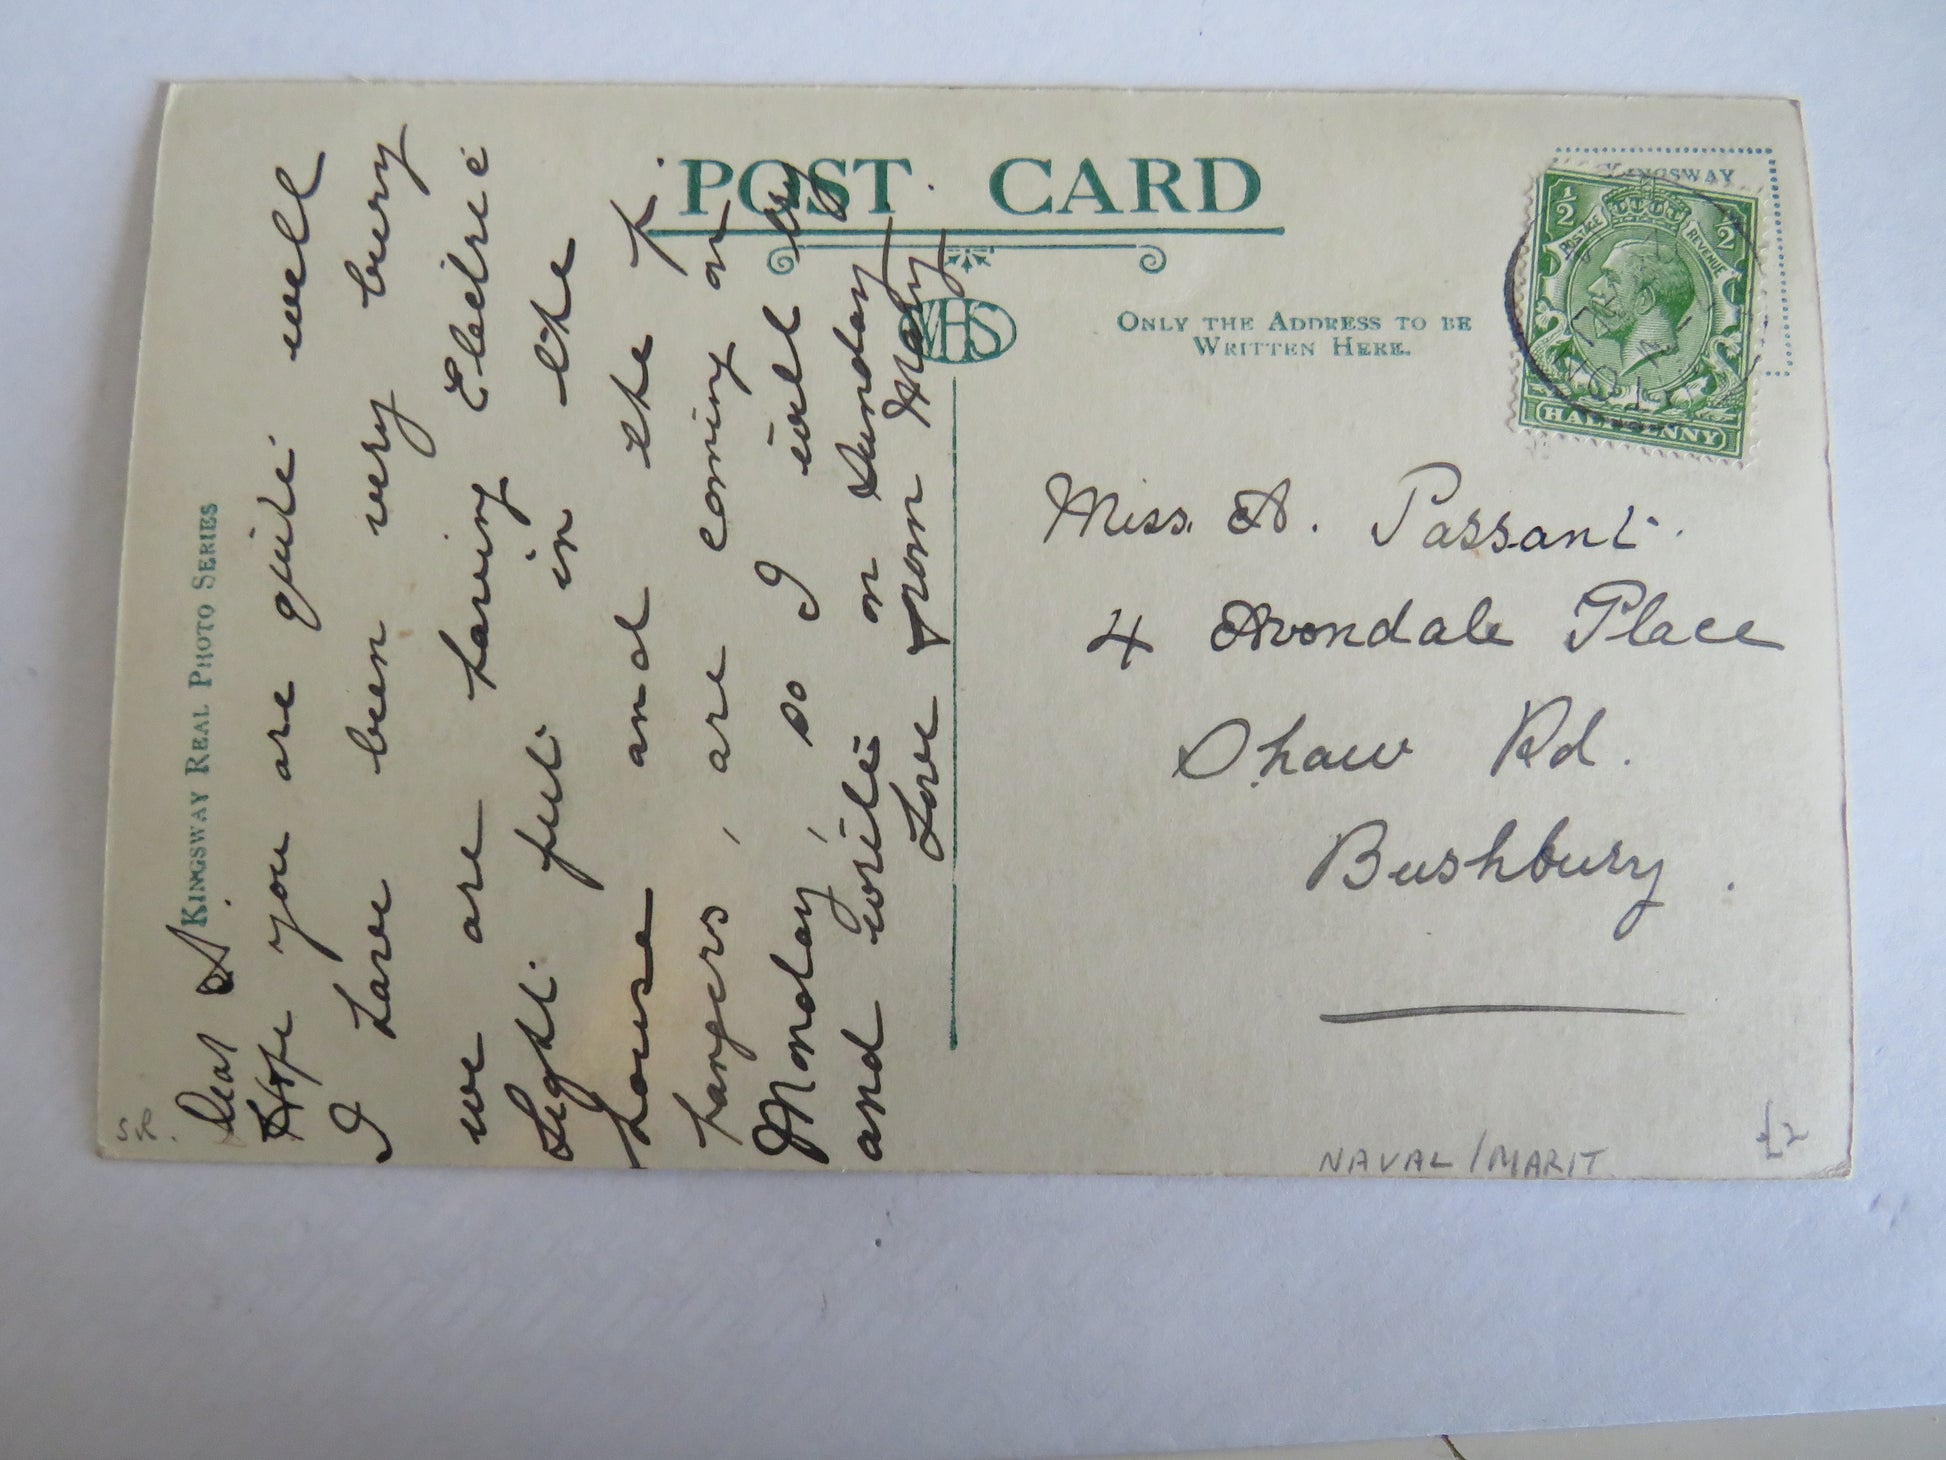 KINGSWAY REAL PHOTO SERIES
Dear A.
Hope you are quite well
I have been very busy
we are having Electric
Light put in the
house and the P.
hangers, are coming on
Monday, so I will try
and write on Sunday
Love from May
POST CARD
WHS
ONLY THE ADDRESS TO BE
WRITTEN HERE.
KINGSWAY
½ ½
POSTAGE REVENUE
HALFPENNY
Miss. A. Passant.
4 Avondale Place
Shaw Rd.
Bushbury.
NAVAL / MARIT.
£2